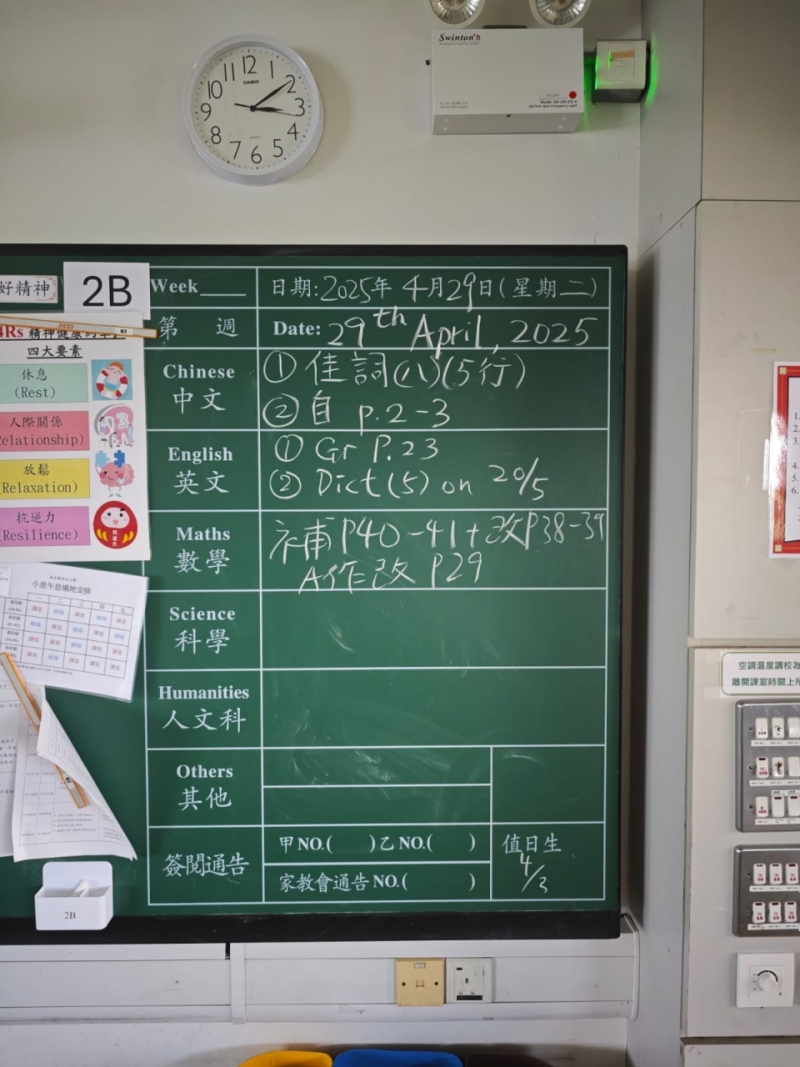 12
1
2
3
4
5
6
7
8
9
10
11
CASIO
Swinton's
好精神
2B
Week
日期:2025年4月29日(星期二)
第 週
Date: 29th April, 2025
4Rs 精神健康
四大要素
休息
(Rest)
人際關係
Relationship)
放鬆
(Relaxation)
抗逆力
(Resilience)
Chinese
中文
① 佳詞(八)(5行)
② 自 p.2-3
English
英文
① Gr P.23
② Dict(5) on 20/5
Maths
數學
補 P40-41+改P38-39
A作改 P29
Science
科學
Humanities
人文科
Others
其他
簽閱通告
甲NO.( )乙NO.( )
家教會通告NO.( )
值日生
4/3
小息午息場地安排
2B
1.
2.
3.
4.
5.
6.
空調溫度調校為
離開課室時關上所